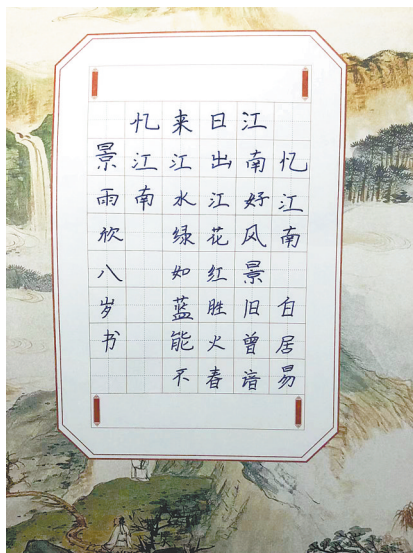 忆江南 白居易
江南好风景旧曾谙
日出江花红胜火春
来江水绿如蓝能不
忆江南
景雨欣八岁书